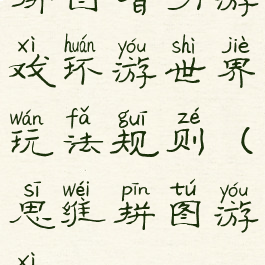 xì huán yóu shì jiè
戏环游世界
wán fǎ guī zé
玩法规则（
sī wéi pīn tú yóu
思维拼图游
xì